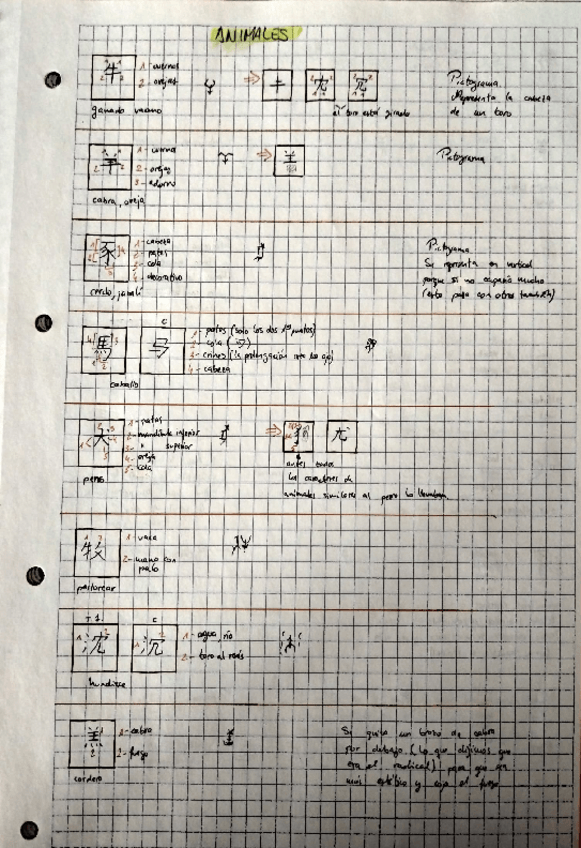 ANIMALES
牛
1- cuernos
2- orejas
ganado vacuno
el toro está girado
Pictograma.
Representa la cabeza
de un toro
1- cuernos
2- orejas
3- adorno
cabra, oveja
Pictograma
豕
1- cabeza
2- patas
3- cola
4- decorativo
cerdo, jabalí
Pictograma
Se representa en vertical
porque si no ocuparía mucho
(esto pasa con otros también)
馬
C
马
1- patas (solo los dos puntos)
2- cola
3- crines (la prolongación
4- cabeza
caballo
犬
1- patas
2- mandíbula inferior
3- " superior
4- oreja
5- cola
perro
antes todos
los caracteres de
animales similares al perro lo llevaban
牧
1- vaca
2- mano con
palo
pastorear
T.J.
沈
C
沉
1- agua, río
2- toro al revés
hundirse
羔
1- cabra
2- fuego
cordero
Se quita un trozo de cabra
por debajo (lo que dijimos que
era el radical) para que sea
más estético y coja el fuego